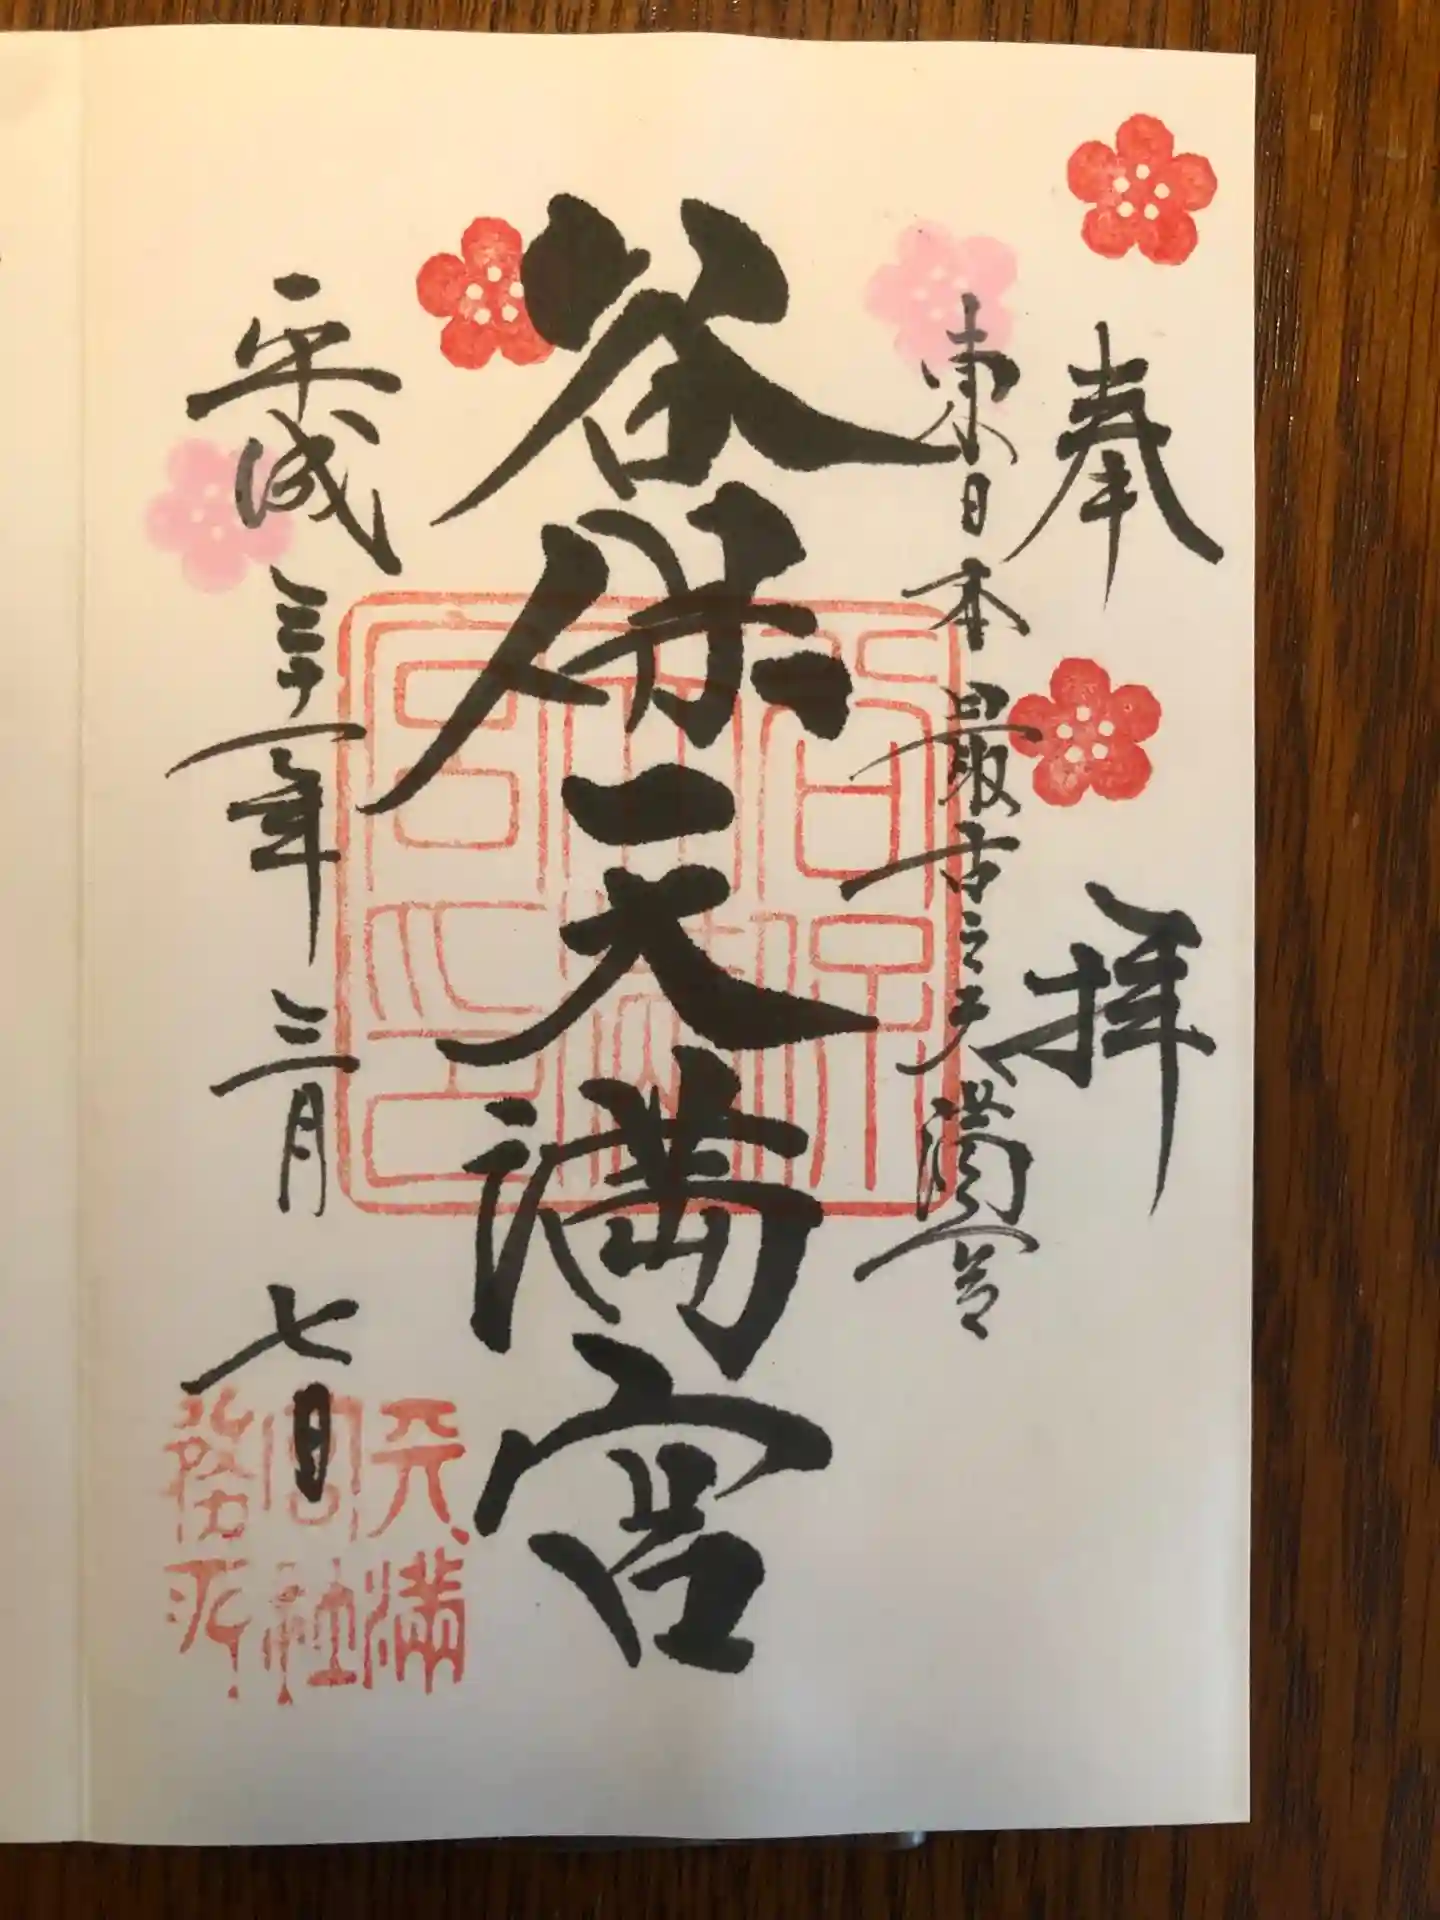 奉拝
東日本最古之天満宮
谷保天満宮
平成三十一年三月七日
天満
宮社
務所